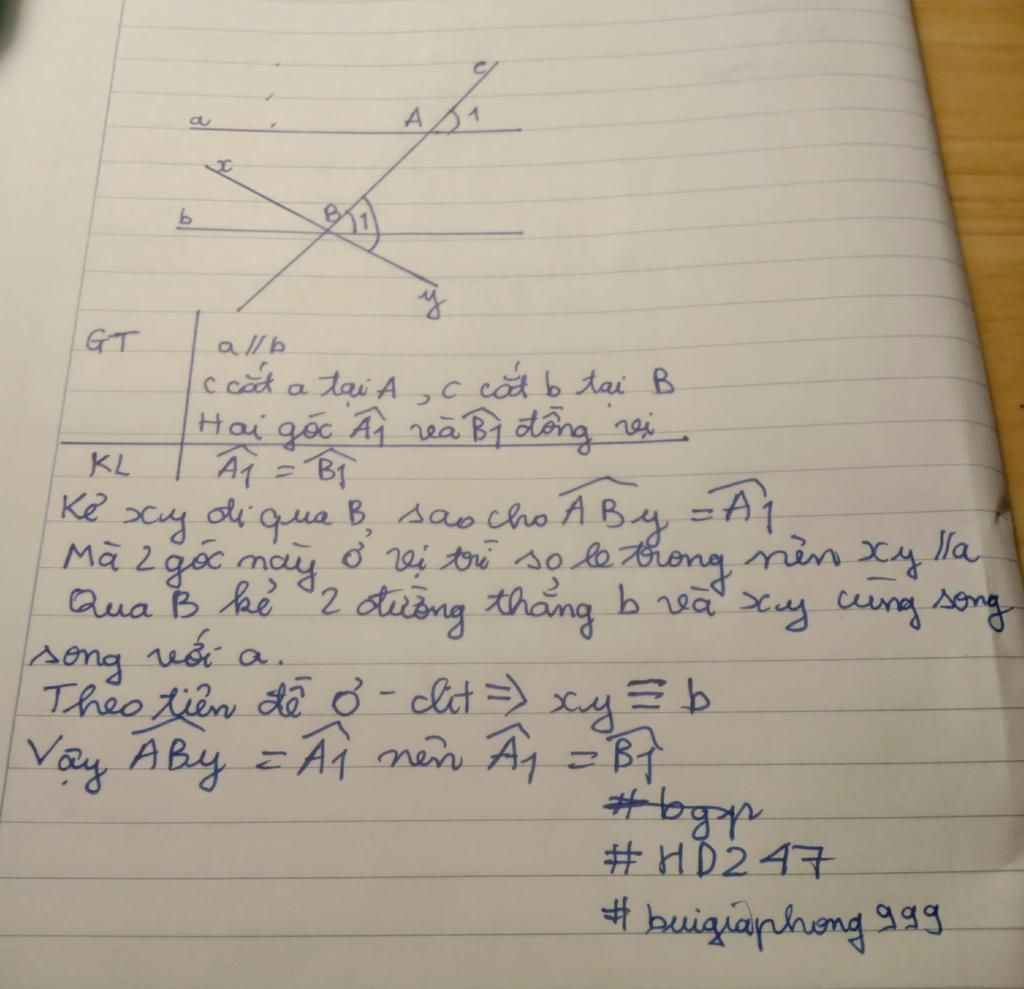 c
A 1
a
x
B 1
b
y
GT a//b
c cắt a tại A, c cắt b tại B
Hai góc Â1 và B̂1 đồng vị
KL Â1 = B̂1
Kẻ xy đi qua B, sao cho ABy = Â1
Mà 2 góc này ở vị trí so le trong nên xy // a
Qua B kẻ 2 đường thẳng b và xy cùng song
song với a.
Theo tiên đề Ơ-clit => xy ≡ b
Vậy ABy = Â1 nên Â1 = B̂1
#bgxp
#HD247
#buigiaphong999